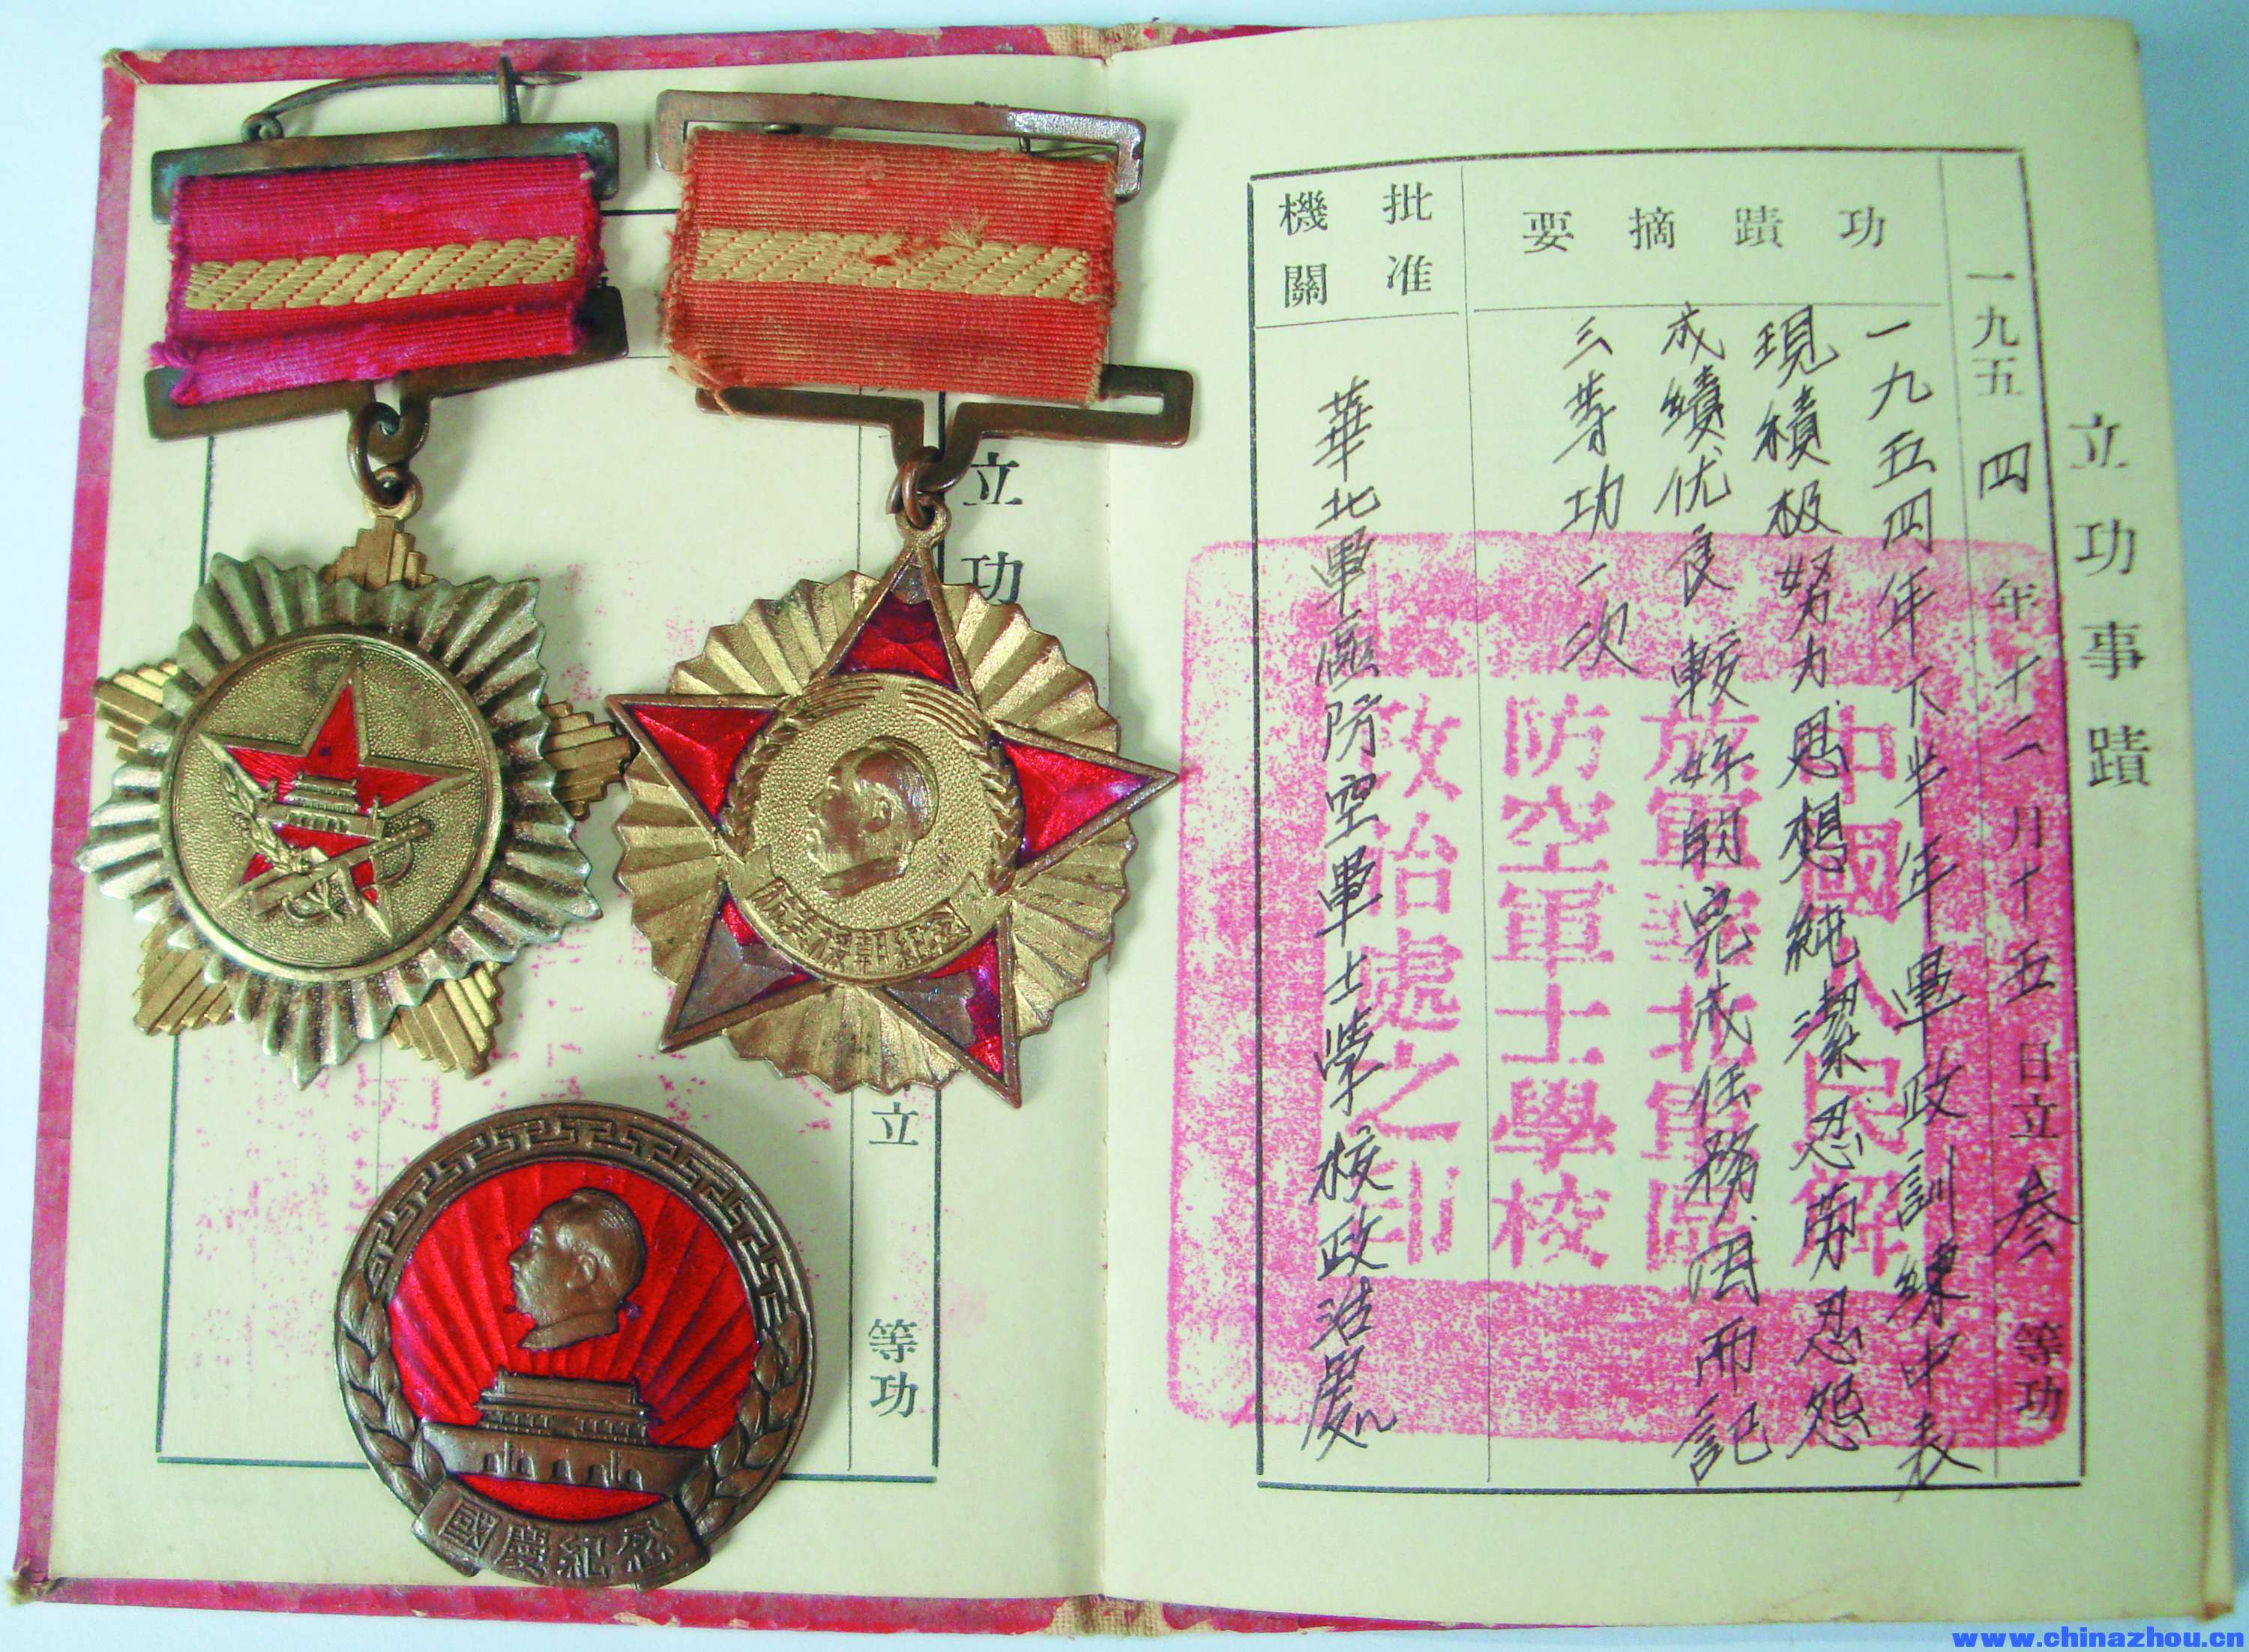 立功事蹟
一九五四年十二月十五日立叁等功
功蹟摘要
一九五四年下半年軍政訓練中表
現積极努力思想純潔忍劳忍怨
成績优良較好的完成任務因而記
三等功一次
批准
機關
華北軍區防空軍士学校政治處
中國人民解
放軍華北軍區
防空軍士學校
政治處之印
立功
立
等功
抗美援朝紀念
國慶紀念
www.chinazhou.cn